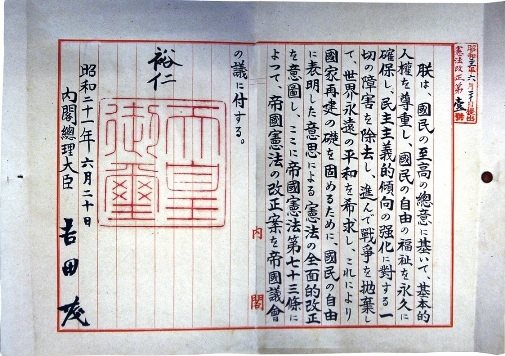 憲法改正第壹號
朕は、國民の至高の總意に基いて、基本的
人權を尊重し、國民の自由の福祉を永久に
確保し、民主主義的傾向の强化に對する一
切の障害を除去し、進んで戰爭を抛棄し
て、世界永遠の平和を希求し、これにより
國家再建の礎を固めるために、國民の自由
に表明した意思による憲法の全面的改正
を意圖し、ここに帝國憲法第七十三條に
よつて、帝國憲法の改正案を帝國議會
内閣
の議に付する。
裕仁
天皇
御璽
昭和二十一年六月二十日
内閣總理大臣 吉田茂